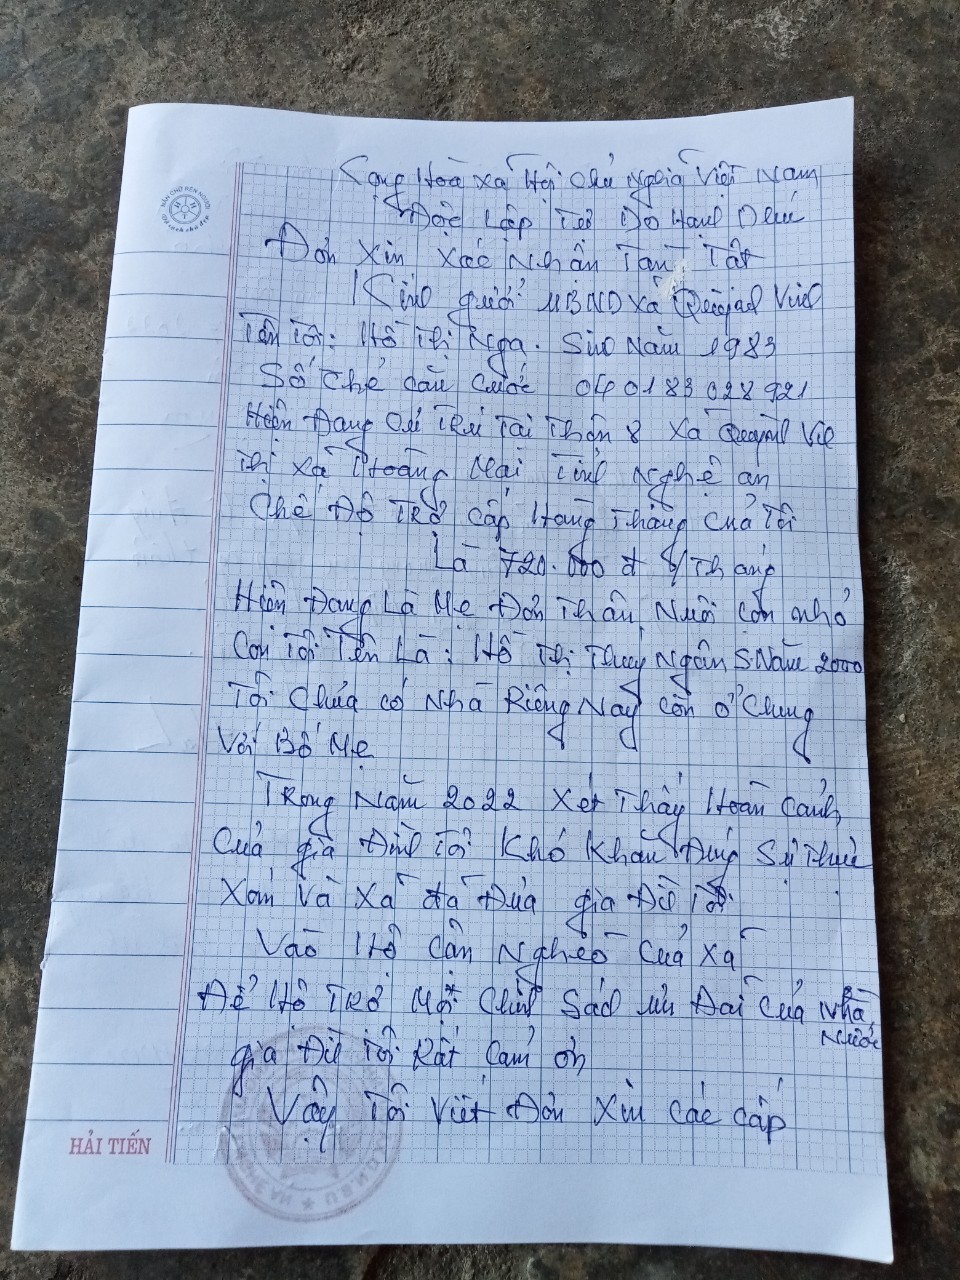 Cộng Hòa Xã Hội Chủ Nghĩa Việt Nam
Độc Lập Tự Do Hạnh Phúc
Đơn Xin Xác Nhận Tàn Tật
Kính gửi UBND Xã Quỳnh Vinh
Tên Tôi: Hồ Thị Nga. Sinh Năm 1983
Số thẻ căn cước 040183028921
Hiện Đang Cư Trú Tại Thôn 8 Xã Quỳnh Vinh
Thị Xã Hoàng Mai Tỉnh Nghệ an
Chế Độ Trợ cấp Hàng Tháng Của Tôi
Là 720.000 đ /Tháng
Hiện Đang Là Mẹ Đơn Thân Nuôi con nhỏ
Con Tôi Tên Là: Hồ Thị Thúy Ngân S.Năm 2000
Tôi Chưa có Nhà Riêng Nay còn ở Chung
Với Bố Mẹ
Trong Năm 2022 Xét Thấy Hoàn Cảnh
Của gia Đình Tôi Khó Khăn Đúng Sự Thực
Xóm Và Xã đã Đưa gia Đình Tôi
Vào Hộ Cận Nghèo Của Xã
Để Hỗ Trợ Một Chính Sách ưu Đãi Của Nhà
Nước
gia Đình Tôi Rất Cảm ơn
Vậy Tôi Viết Đơn Xin Các Cấp
HẢI TIẾN